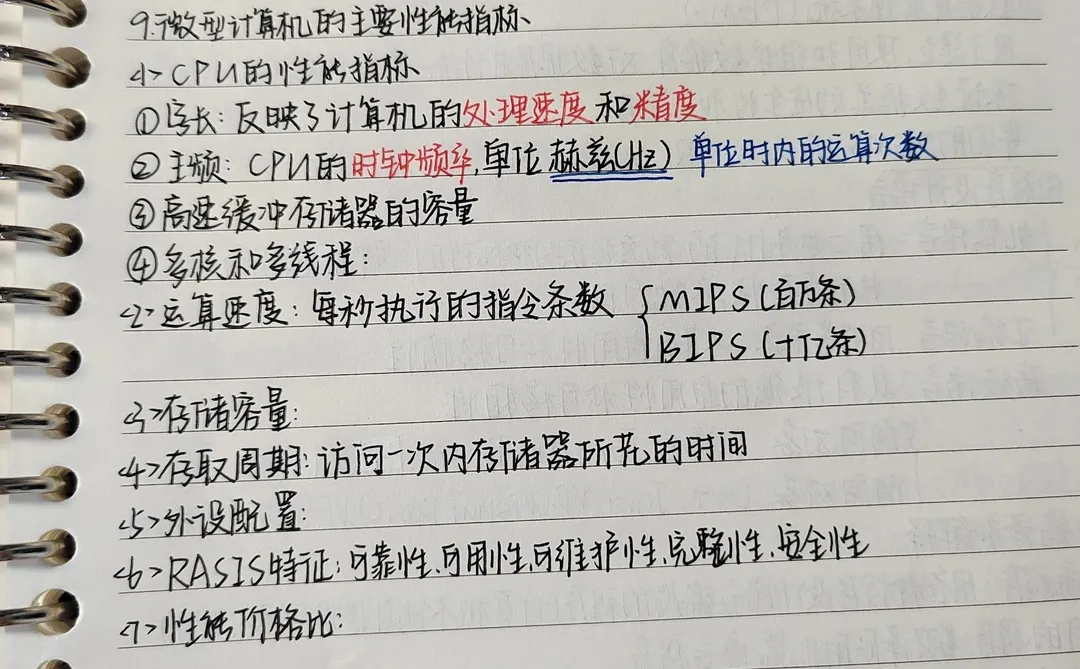 9.微型计算机的主要性能指标
<1>CPU的性能指标
①字长:反映了计算机的处理速度和精度
②主频:CPU的时钟频率,单位赫兹(Hz) 单位时内的运算次数
③高速缓冲存储器的容量
④多核和多线程:
<2>运算速度:每秒执行的指令条数 { MIPS(百万条)
BIPS(十亿条)
<3>存储容量:
<4>存取周期:访问一次内存储器所花的时间
<5>外设配置:
<6>RASIS特征:可靠性、可用性、可维护性、完整性、安全性
<7>性能价格比: